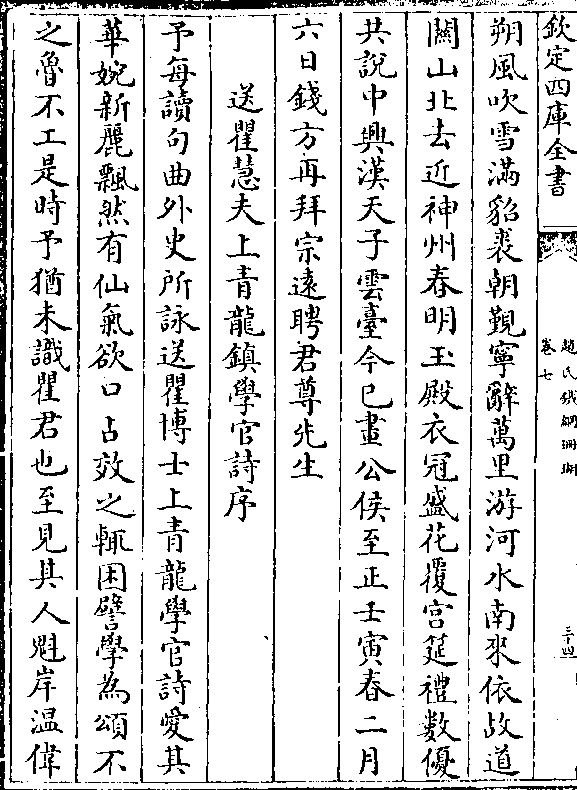 欽定四庫全書
趙氏鐵網珊瑚
卷七
三十四
朔風吹雪滿貂裘朝覲寧辭萬里游河水南來依故道
關山北去近神州春明玉殿衣冠盛花覆宮筵禮數優
共說中興漢天子雲臺今已畫公侯至正壬寅春二月
六日錢方再拜宗遠聘君尊先生
送瞿慧夫上青龍鎮學官詩序
予每讀句曲外史所詠送瞿博士上青龍學官詩愛其
華婉新麗飄然有仙氣欲口占效之輒困譬學為頌不
之魯不工是時予猶未識瞿君也至見其人魁岸溫偉